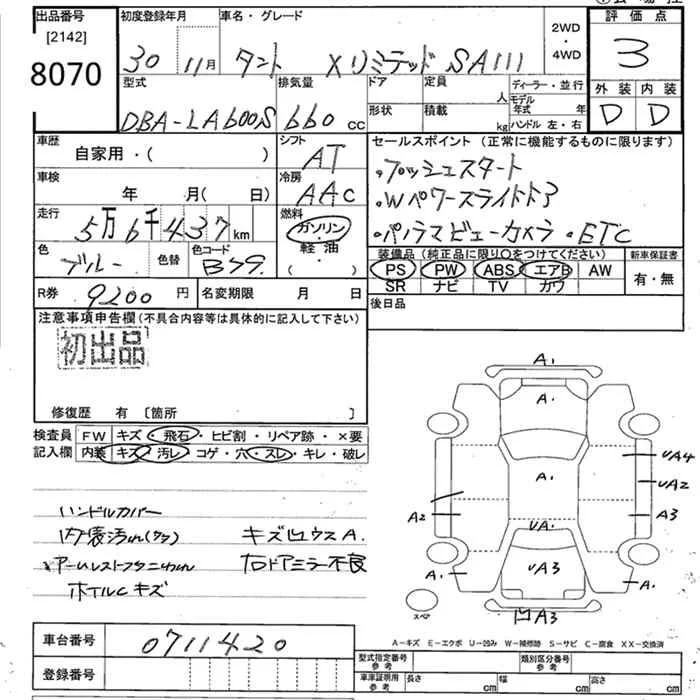 出品番号
[2142]
8070
初度登録年月
30 11月
車名・グレード
タント XリミテッドSAIII
2WD
・
4WD
評価点
3
外装 内装
D D
型式
DBA-LA600S
排気量
660 CC
ドア
形状
定員
人
積載
kg
ディーラー・並行
モデル年式 年
ハンドル 左・右
車歴
自家用・( )
シフト
AT
車検
年 月( 日)
冷房
AAC
走行
5万6千437km
燃料
ガソリン
・
軽油
色
ブルー
色替
色コード
B59
R券 9200円
名変期限 月 日
セールスポイント(正常に機能するものに限ります)
・プッシュスタート
・Wパワースライドドア
・パノラマビューカメラ ・ETC
装備品(純正品に限り○をつけてください)
PS PW ABS エアB AW
SR ナビ TV カワ
新車保証書
有・無
後日品
注意事項申告欄(不具合内容等は具体的に記入して下さい)
初出品
修復歴 有〔箇所 〕
検査員記入欄
FW キズ・飛石・ヒビ割・リペア跡・×要
内装 キズ・汚レ・コゲ・穴・スレ・キレ・破レ
ハンドルカバー
内装汚れ(クラ) キズ凹ウスA.
アームレストフタこわれ 右ドアミラー不良
ホイルCキズ
A.
A.
UA4
UA2
A.
A3
A2
UA.
UA3
A.
A.
スペア
凹A3
A-キズ E-エクボ U-凹み W-補修跡 S-サビ C-腐食 XX-交換済
車台番号
0711420
登録番号
型式指定番号
参考
類別区分番号
参考
車庫証明用
参考
長さ cm
幅 cm
高さ cm